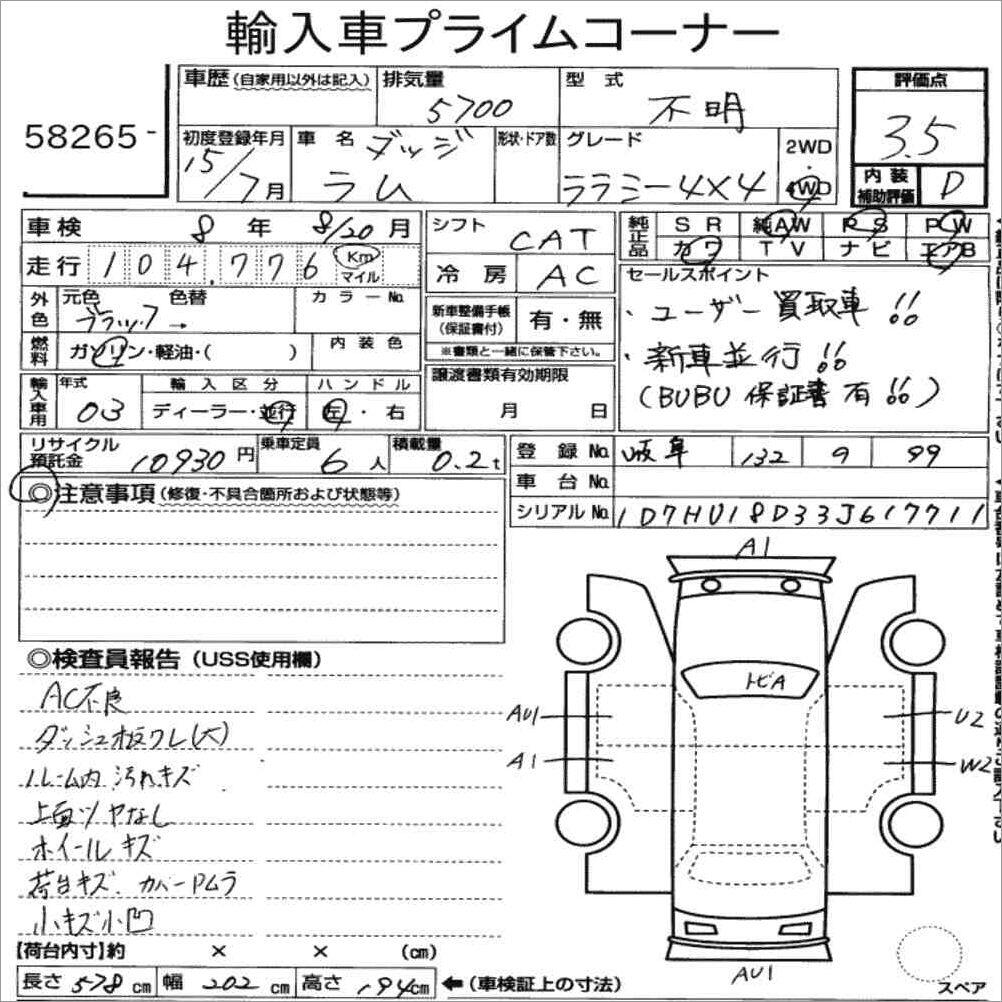 輸入車プライムコーナー
58265-
車歴(自家用以外は記入) 排気量 5700 型式 不明 評価点 3.5
初度登録年月 15/7月 車名 ダッジ ラム 形状・ドア数 グレード ララミー4×4 2WD・4WD 内装補助評価 D
車検 8年 8/20月 シフト CAT 純正品 SR 純AW PS PW
カワ TV ナビ エアB
走行 104,776 Km マイル 冷房 AC セールスポイント
外色 元色 ブラック→ 色替 カラーNo. 新車整備手帳(保証書付) 有・無 ・ユーザー買取車!!
燃料 ガソリン・軽油・( ) 内装色 ※書類と一緒に保管下さい。 ・新車並行!!
輸入車用 年式 03 輸入区分 ディーラー・並行 ハンドル 左・右 譲渡書類有効期限 月 日 (BUBU保証書有!!)
リサイクル預託金 10930円 乗車定員 6人 積載量 0.2t 登録No. 岐阜 132 9 99
◎注意事項(修復・不具合箇所および状態等) 車台No.
シリアルNo. 1D7HU18D33J617711
◎検査員報告(USS使用欄)
AC不良
ダッシュ板ワレ(大)
ルーム内汚れキズ
上面ツヤなし
ホイールキズ
荷台キズ、カバーPムラ
小キズ小凹
A1
トビA
AU1 U2
A1 W2
AU1
スペア
【荷台内寸】約 × × (cm)
長さ 578cm 幅 202cm 高さ 194cm ←(車検証上の寸法)